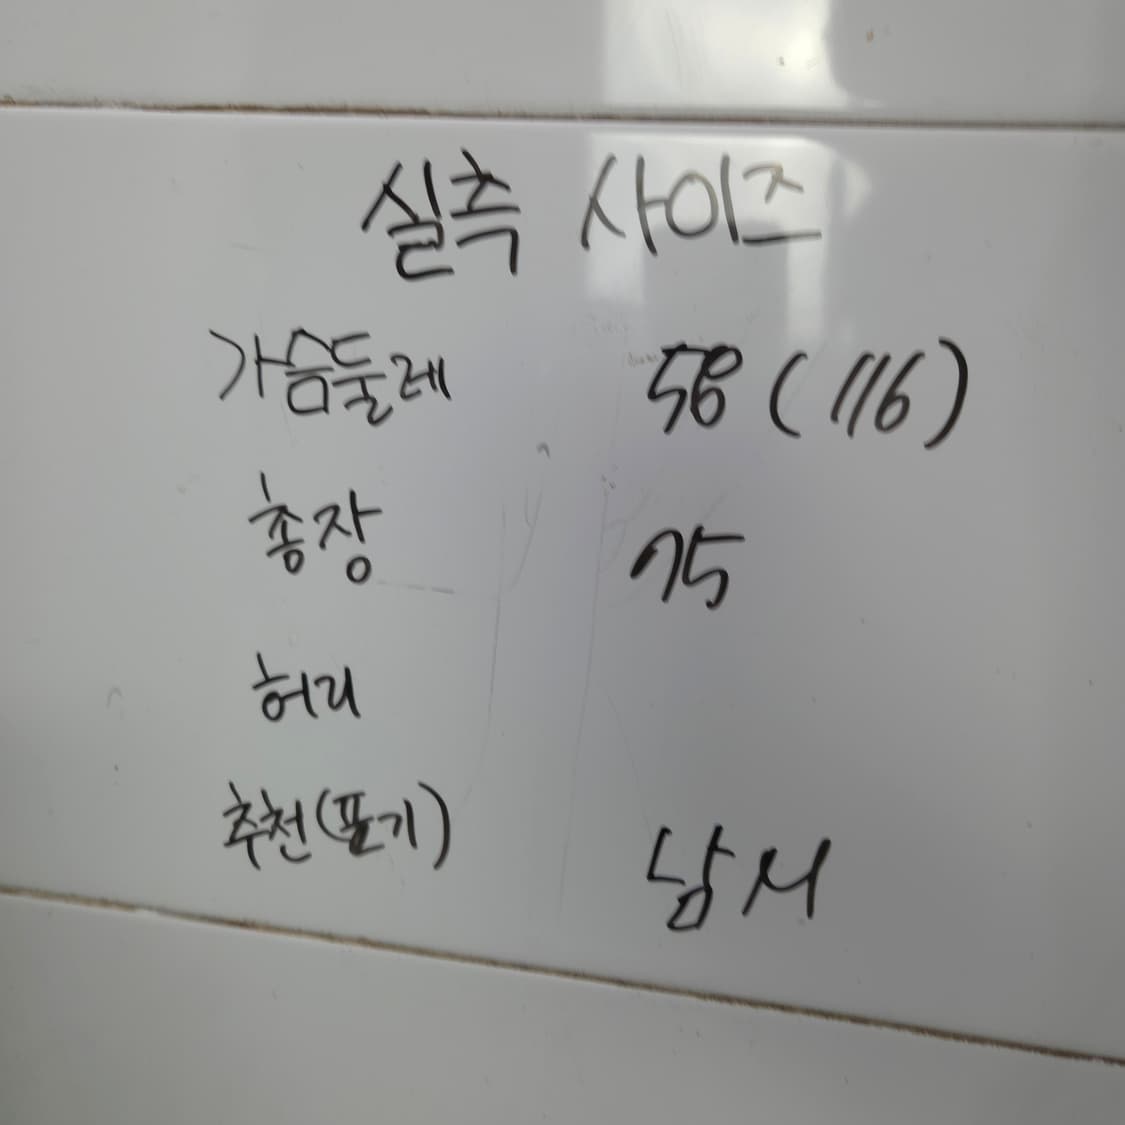 실측 사이즈
가슴둘레 58 (116)
총장 75
허리
추천(표기) 남 M